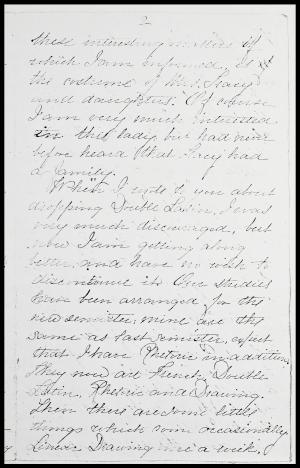 2
these interesting matters of
which I am informed, is
the costume of Mrs. Tracy
and daughters. Of course
I am very much interested
in the lady but had never
before heard that Tracy had
a family.
When I wrote to you about
dropping Double Latin, I was
very much discouraged, but
now I am getting along
better, and have no wish to
discontinue it. Our studies
have been arranged for the
new semister; mine are the
same as last semister, except
that I have Rhetoric in addition.
They now are French, Double
Latin, Rhetoric and Drawing.
Then there are some little
things which come occasionally,
Linear Drawing once a week,